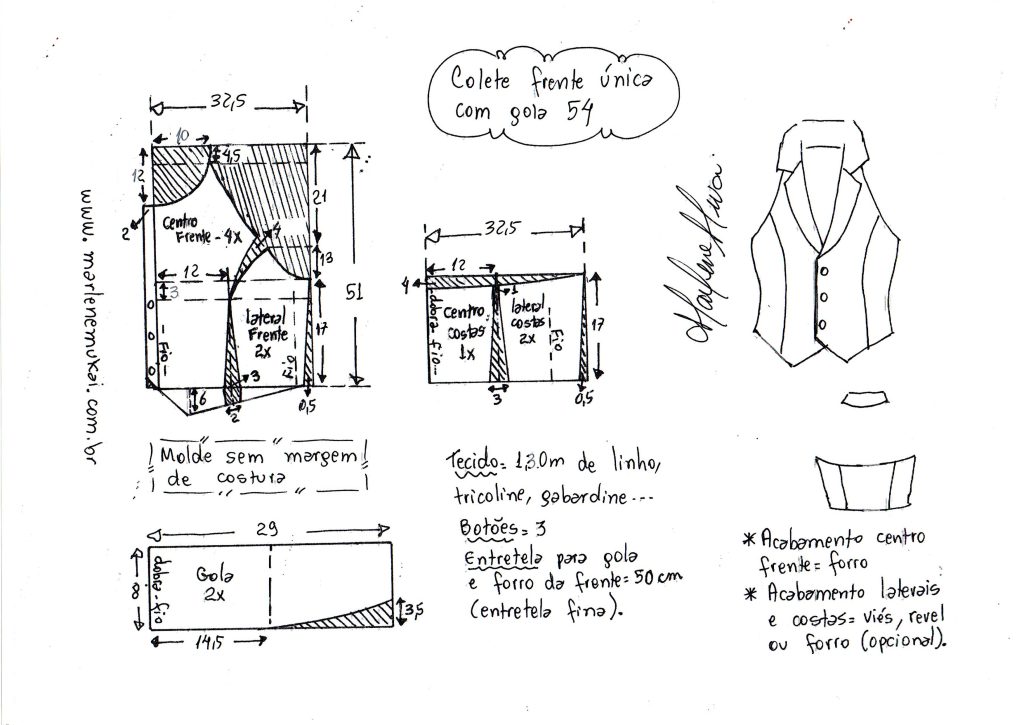 Colete frente única
com gola 54
32,5
10
4,5
12
21
2
Centro
Frente - 4x
4
13
12
3
51
lateral
Frente
2x
17
Fio
Fio
3
6
2
0,5
www.marlenemukai.com.br
Molde sem margem
de costura
29
dobra-fio
Gola
2x
8
3,5
14,5
32,5
12
4
1
dobra-fio
Centro
costas
1x
lateral
costas
2x
Fio
17
3
0,5
Tecido= 1,30m de linho,
tricoline, gabardine...
Botões= 3
Entretela para gola
e forro da frente= 50cm
(entretela fina).
Marlene Mukai
* Acabamento centro
frente= forro
* Acabamento laterais
e costas= viés, revel
ou forro (opcional).